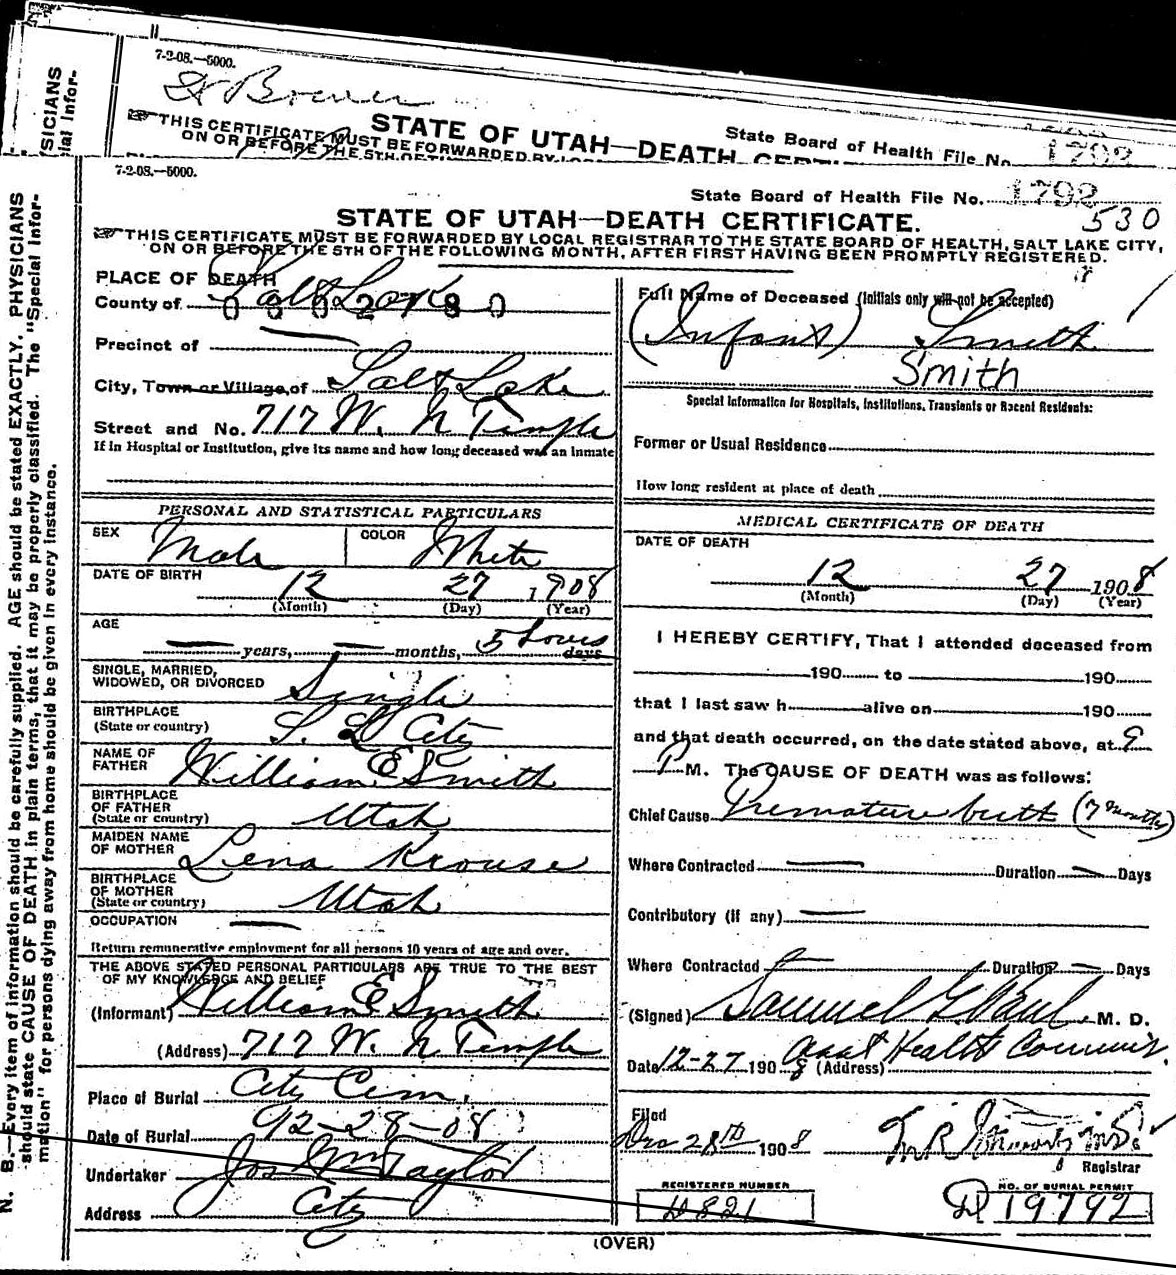 7-2-08.—5000.
State Board of Health File No. 1792
STATE OF UTAH—DEATH CERTIFI
THIS CERTIFICATE MUST BE FORWARDED BY
ON OR BEFORE THE 5TH OF
SICIANS
ial Infor-
7-2-08.—5000.
State Board of Health File No. 1792
530
STATE OF UTAH—DEATH CERTIFICATE.
THIS CERTIFICATE MUST BE FORWARDED BY LOCAL REGISTRAR TO THE STATE BOARD OF HEALTH, SALT LAKE CITY,
ON OR BEFORE THE 5TH OF THE FOLLOWING MONTH, AFTER FIRST HAVING BEEN PROMPTLY REGISTERED.
PLACE OF DEATH
County of Salt Lake
Precinct of —
City, Town or Village, of Salt Lake
Street and No. 717 W. N Temple
If in Hospital or Institution, give its name and how long deceased was an inmate
PERSONAL AND STATISTICAL PARTICULARS
SEX Male COLOR White
DATE OF BIRTH 12 27 1908
(Month) (Day) (Year)
AGE
— years, — months, 5 hours days
SINGLE, MARRIED,
WIDOWED, OR DIVORCED Single
BIRTHPLACE
(State or country) S. L. City
NAME OF
FATHER William E Smith
BIRTHPLACE
OF FATHER
(State or country) Utah
MAIDEN NAME
OF MOTHER Lena Krouse
BIRTHPLACE
OF MOTHER
(State or country) Utah
OCCUPATION —
Return remunerative employment for all persons 10 years of age and over.
THE ABOVE STATED PERSONAL PARTICULARS ARE TRUE TO THE BEST
OF MY KNOWLEDGE AND BELIEF
(Informant) William E Smith
(Address) 717 W. N Temple
Place of Burial City Cem.
Date of Burial 12-28-08
Undertaker Jos Wm Taylor
Address City
Full Name of Deceased (Initials only will not be accepted)
(Infant) Smith
Smith
Special Information for Hospitals, Institutions, Transients or Recent Residents:
Former or Usual Residence
How long resident at place of death
MEDICAL CERTIFICATE OF DEATH
DATE OF DEATH
12 27 1908
(Month) (Day) (Year)
I HEREBY CERTIFY, That I attended deceased from
190 to 190
that I last saw h alive on 190
and that death occurred, on the date stated above, at 9
P M. The CAUSE OF DEATH was as follows:
Chief Cause Premature birth (7 months)
Where Contracted — Duration — Days
Contributory (if any) —
Where Contracted — Duration — Days
(Signed) Samuel G Paul M. D.
Date 12-27 1908 (Address) Asst Health Commis.
Filed
Dec 28th 1908
Registrar
REGISTERED NUMBER
D 821
NO. OF BURIAL PERMIT
D 19792
(OVER)
N. B.—Every item of information should be carefully supplied. AGE should be stated EXACTLY. PHYSICIANS
should state CAUSE OF DEATH in plain terms, that it may be properly classified. The "Special Infor-
mation" for persons dying away from home should be given in every instance.